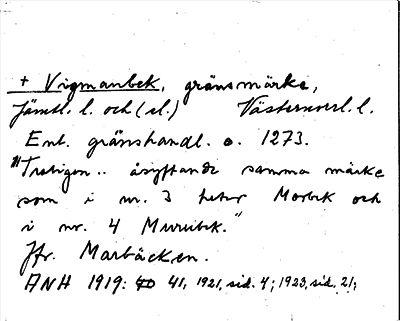 + Vigmanbek, gränsmärke,
Jämtl. l. och (el.) Västernorrl. l.
Enl. gränshandl. o. 1273.
"Troligen.. åsyftande samma märke
som i nr. 3 heter Morbek och
i nr. 4 Murubek."
Jfr. Marbäcken.
ANH 1919: 41, 1921, sid. 4; 1923, sid. 21;